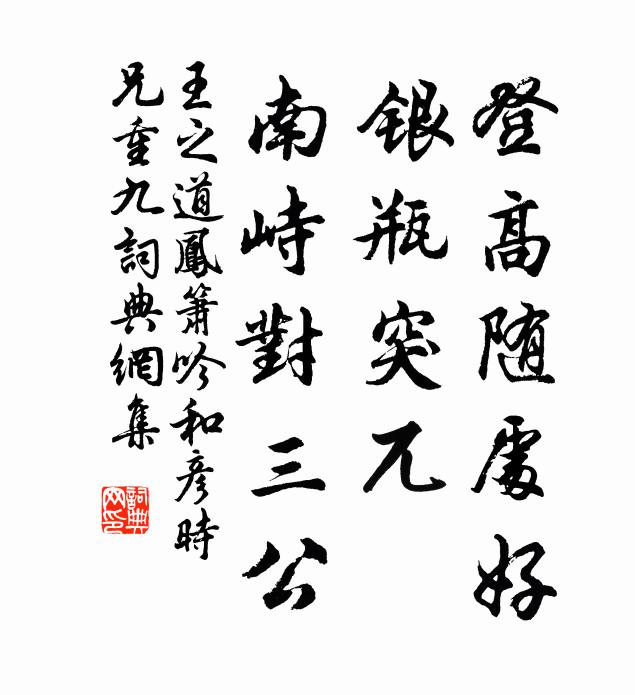 登高随處好
银瓶突兀
南峙對三公
王之道鳳簫吟和彦時
兄重九詞典網集
詞典网印